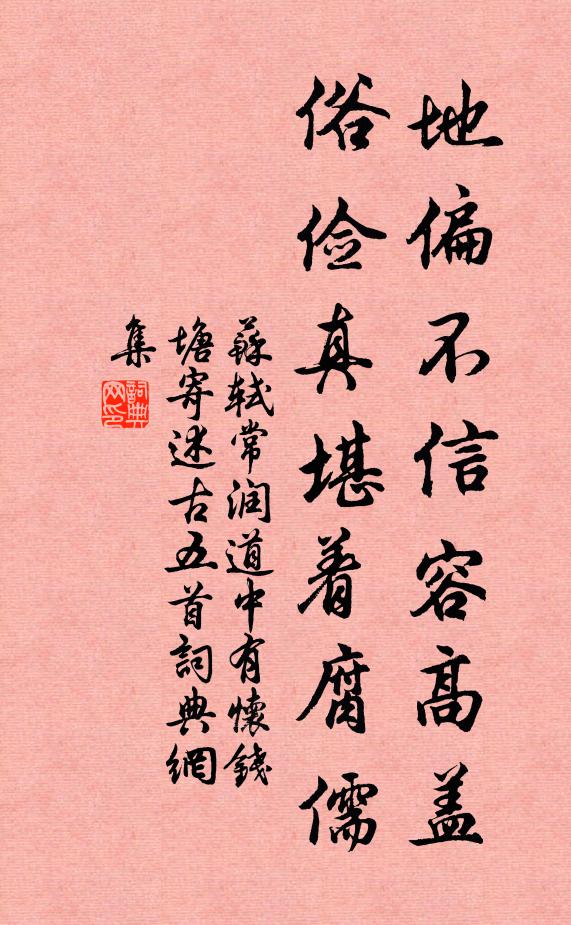 地偏不信容高盖
俗俭真堪着腐儒
蘇轼常润道中有懷錢
塘寄述古五首詞典網
集
詞典
网印